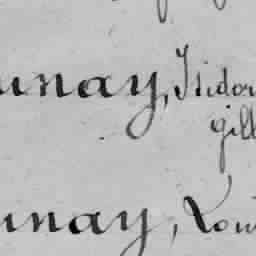 unay, Isidor
gill
unay, Lou